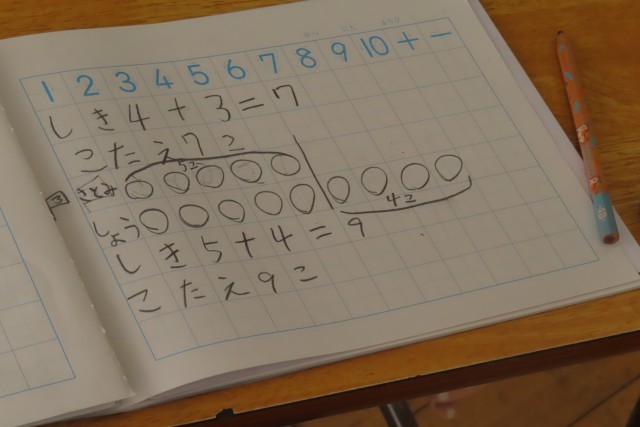 1 2 3 4 5 6 7 8 9 10 + −
しき4+3=7
こたえ7こ
5こ
3 さとみ
4こ
しょう
しき5+4=9
こたえ9こ